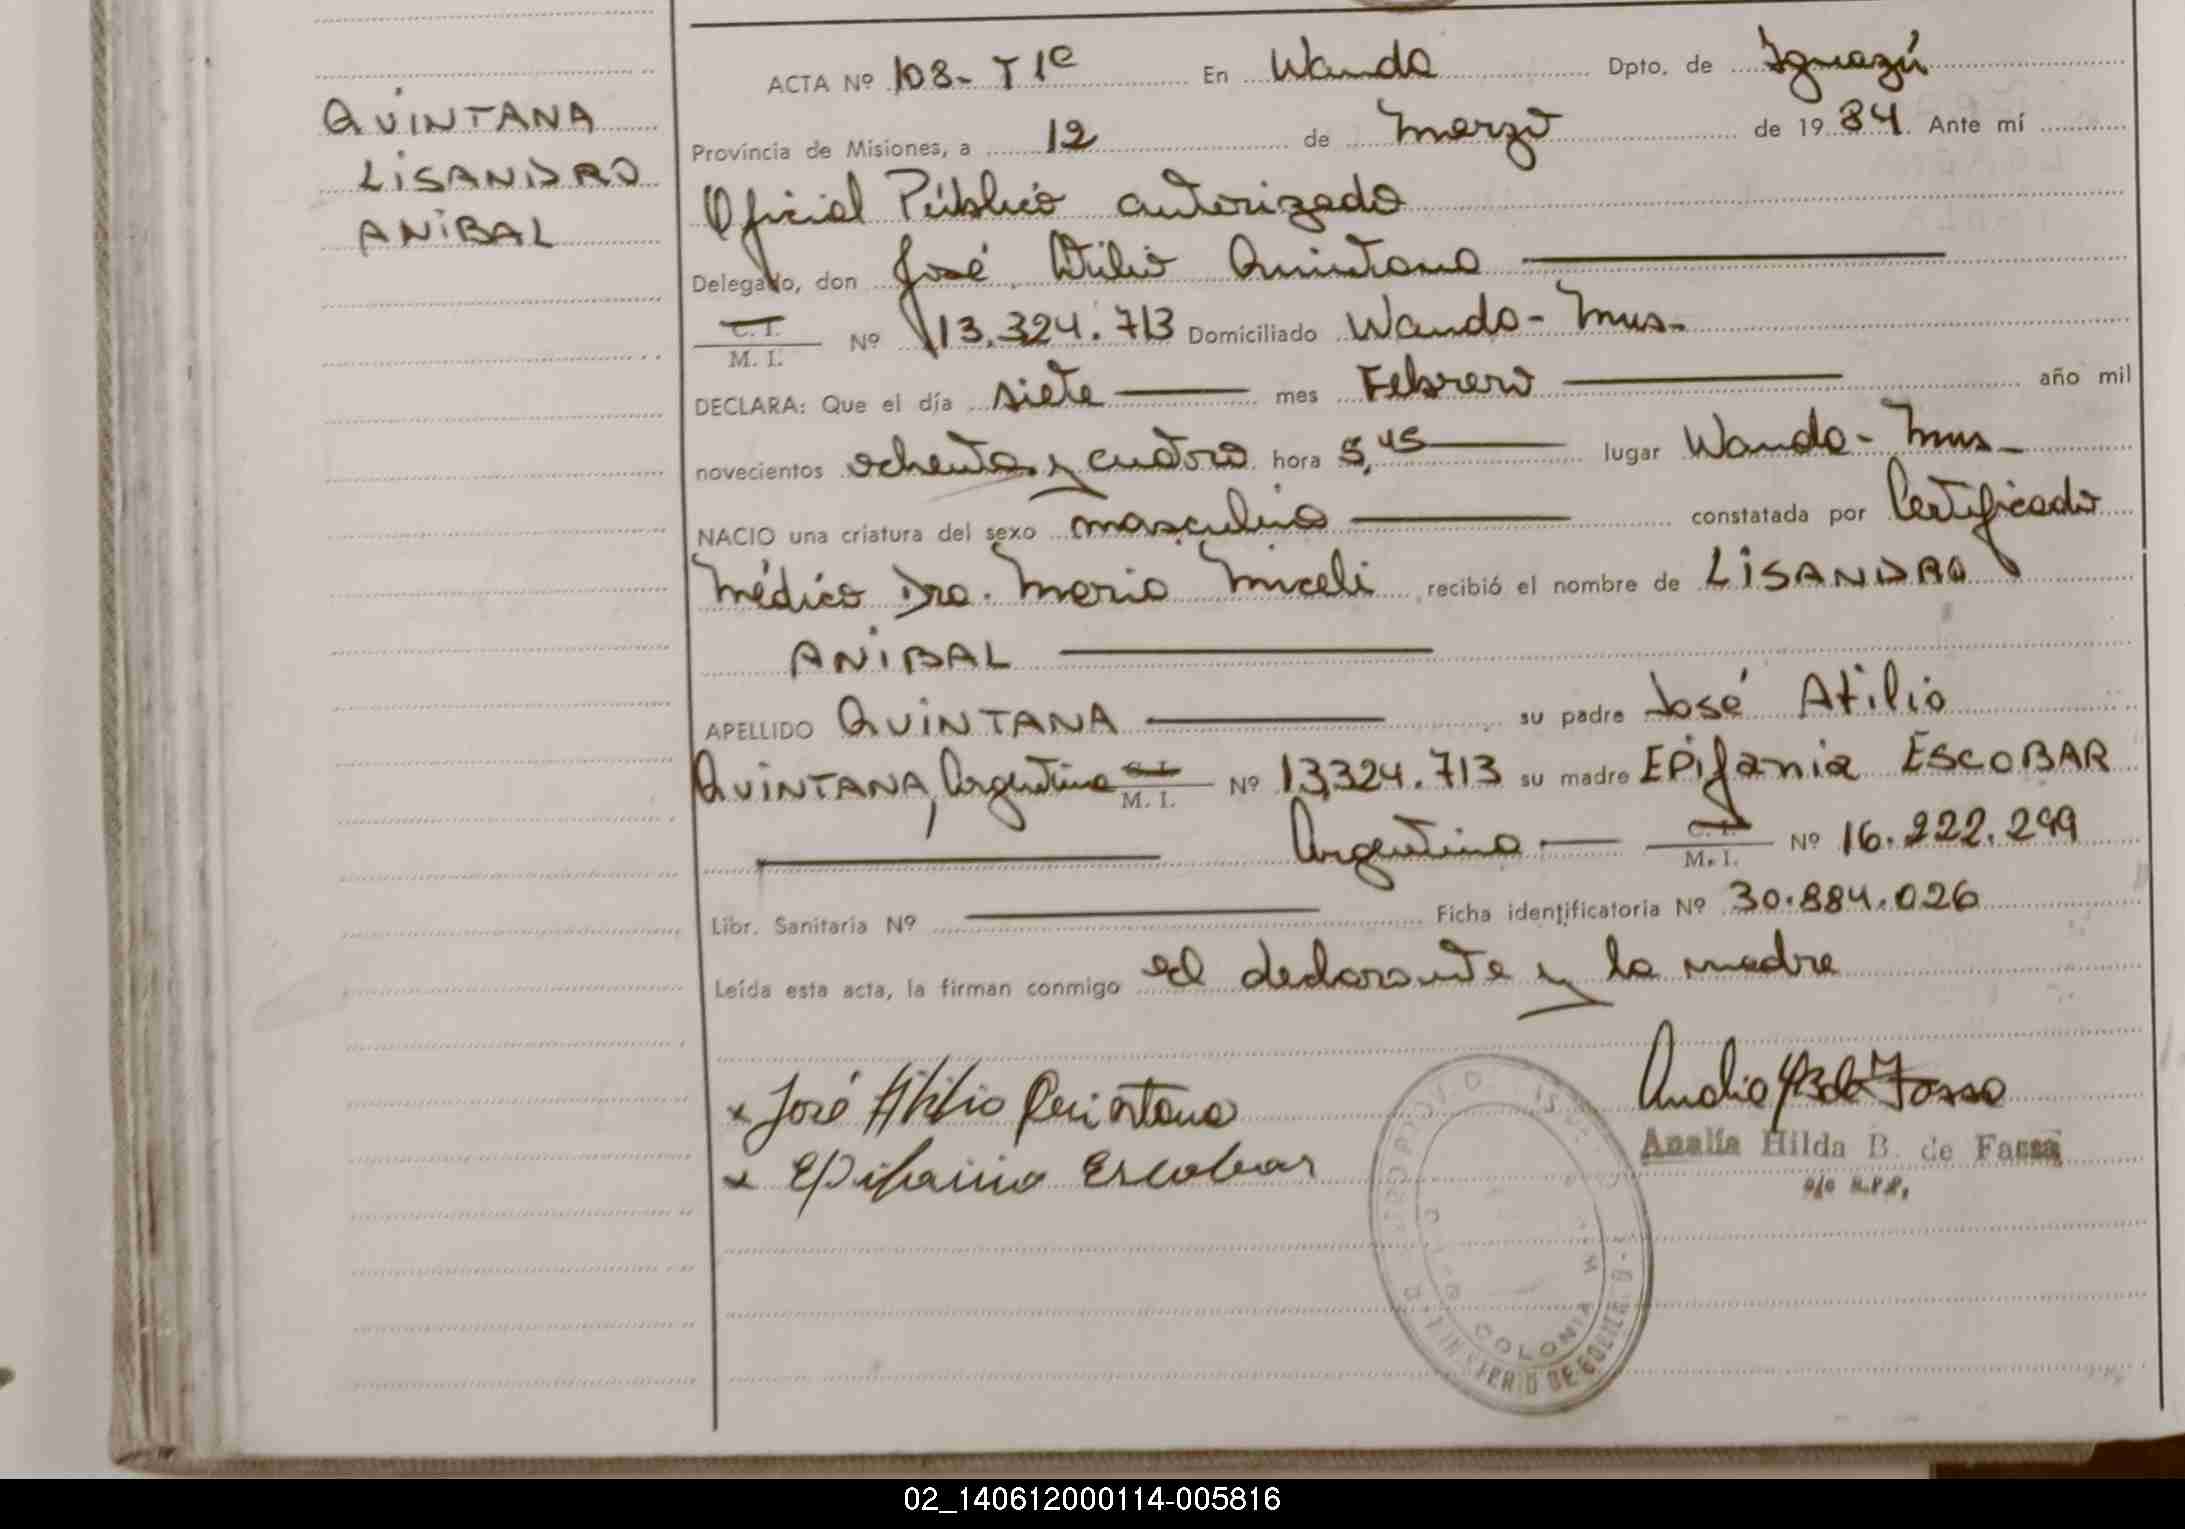 QUINTANA
LISANDRO
ANIBAL
ACTA Nº 108- T 1º En Wanda Dpto. de Iguazú
Provincia de Misiones, a 12 de Marzo de 1984 Ante mí
Oficial Público autorizado
Delegado, don José Atilio Quintana
C. I.
M. I. Nº 13.324.713 Domiciliado Wanda - Mnes.
DECLARA: Que el día siete mes Febrero año mil
novecientos ochenta y cuatro hora 5,45 lugar Wanda - Mnes
NACIO una criatura del sexo masculino constatada por Certificado
Médico Dra. Maria Miceli recibió el nombre de LISANDRO
ANIBAL
APELLIDO QUINTANA su padre José Atilio
QUINTANA, Argentino C. I. M. I. Nº 13,324.713 su madre EPifania ESCOBAR
Argentina C. I. M. I. Nº 16.222.299
Libr. Sanitaria Nº Ficha identificatoria Nº 30.884.026
Leída esta acta, la firman conmigo el declarante y la madre
x José Atilio Quintana
x Epifania Escobar
Analía Hilda B. de Fassa
COLONIA
MINISTERIO DE GOBIERNO
02_140612000114-005816